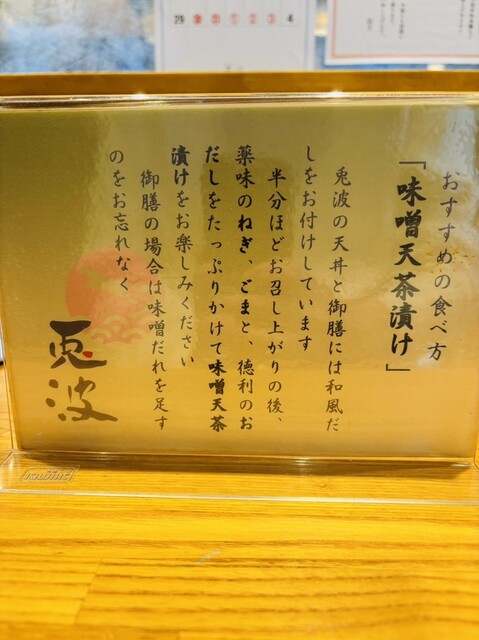 29 30 31 1 2 3 4
おすすめの食べ方
「味噌天茶漬け」
兎波の天丼と御膳には和風だ
しをお付けしています
半分ほどお召し上がりの後、
薬味のねぎ、ごまと、徳利のお
だしをたっぷりかけて味噌天茶
漬けをお楽しみください
御膳の場合は味噌だれを足す
のをお忘れなく
兎波